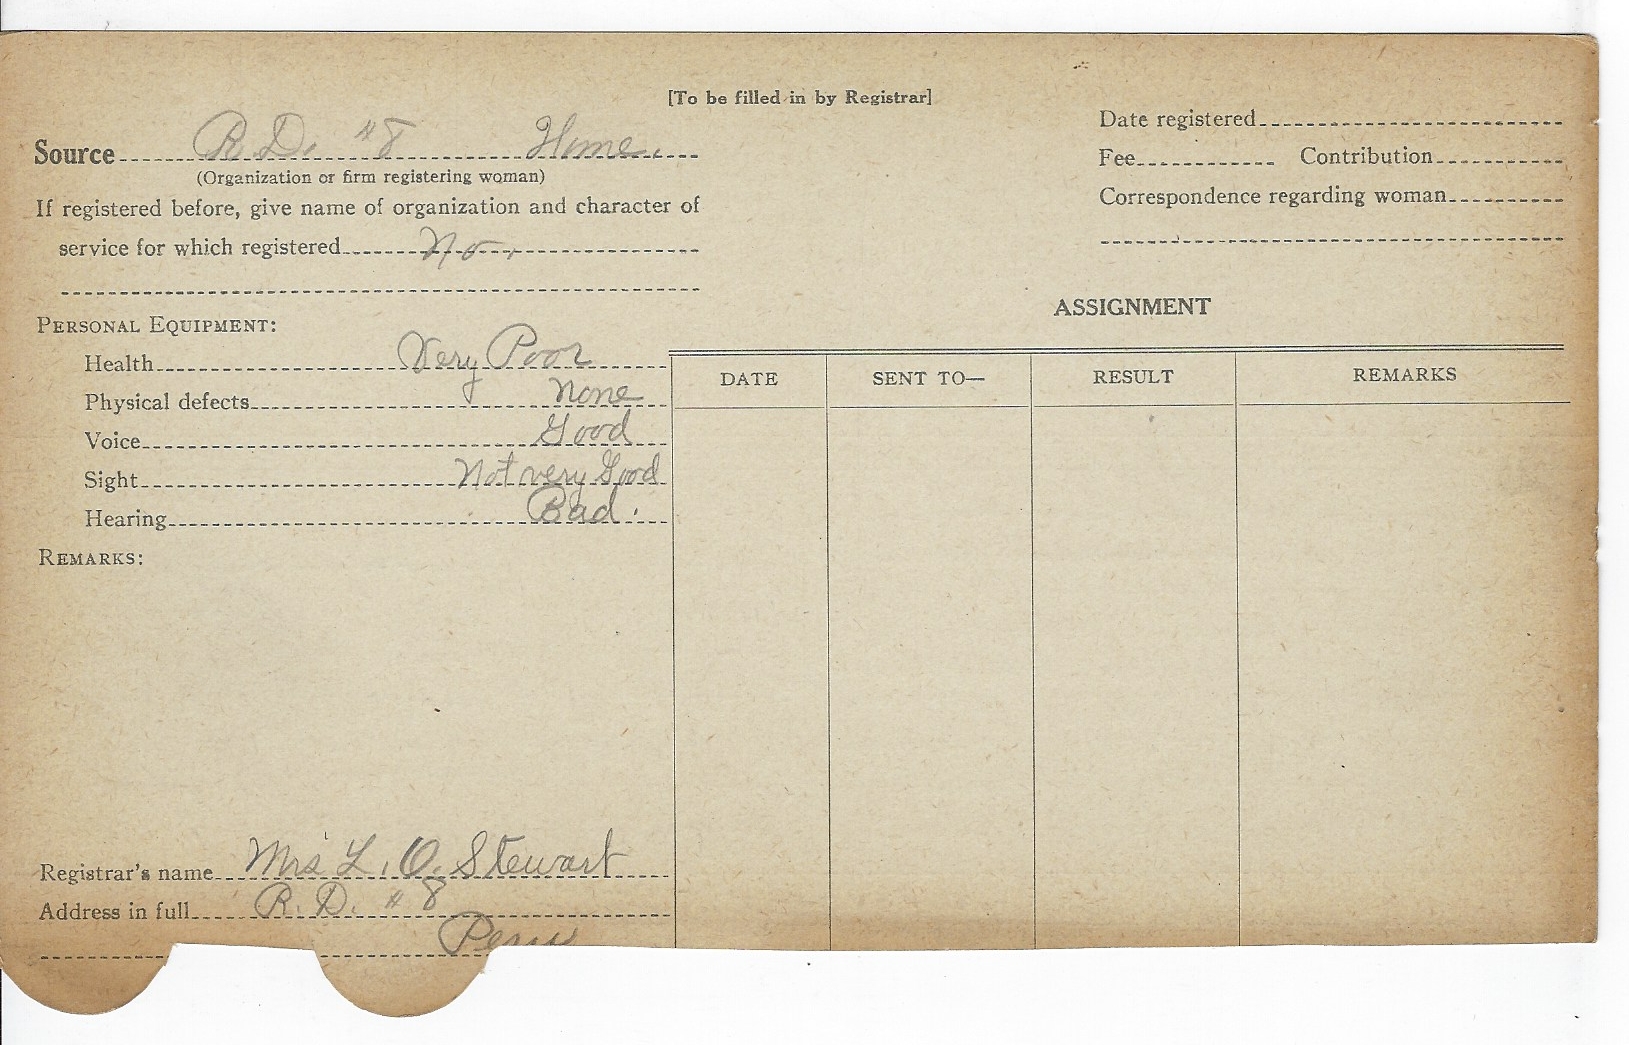 [To be filled in by Registrar]
Source R.D. #8 Home.
(Organization or firm registering woman)
If registered before, give name of organization and character of
service for which registered No.
Date registered
Fee Contribution
Correspondence regarding woman
PERSONAL EQUIPMENT:
Health Very Poor
Physical defects None
Voice Good
Sight Not very Good
Hearing Bad.
REMARKS:
ASSIGNMENT
DATE SENT TO— RESULT REMARKS
Registrar's name Mrs L. O. Stewart
Address in full R. D. #8
Peru